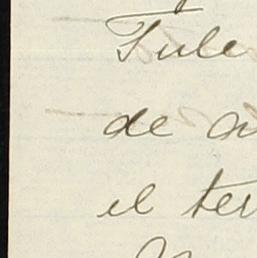 Tule
de a
el ter